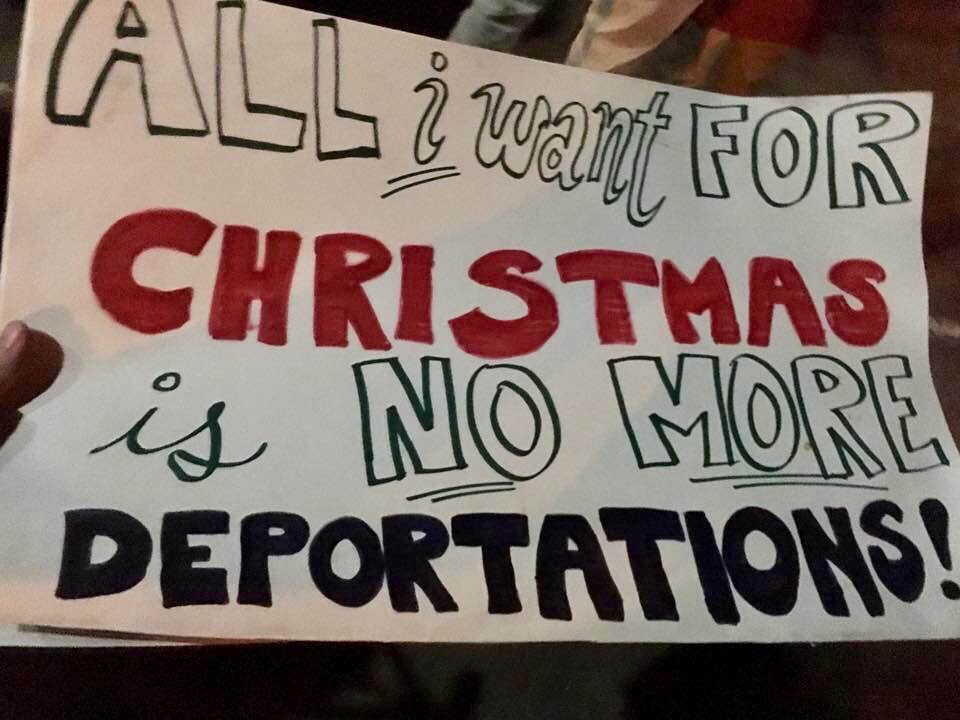 ALL i want FOR
CHRISTMAS
is NO MORE
DEPORTATIONS!